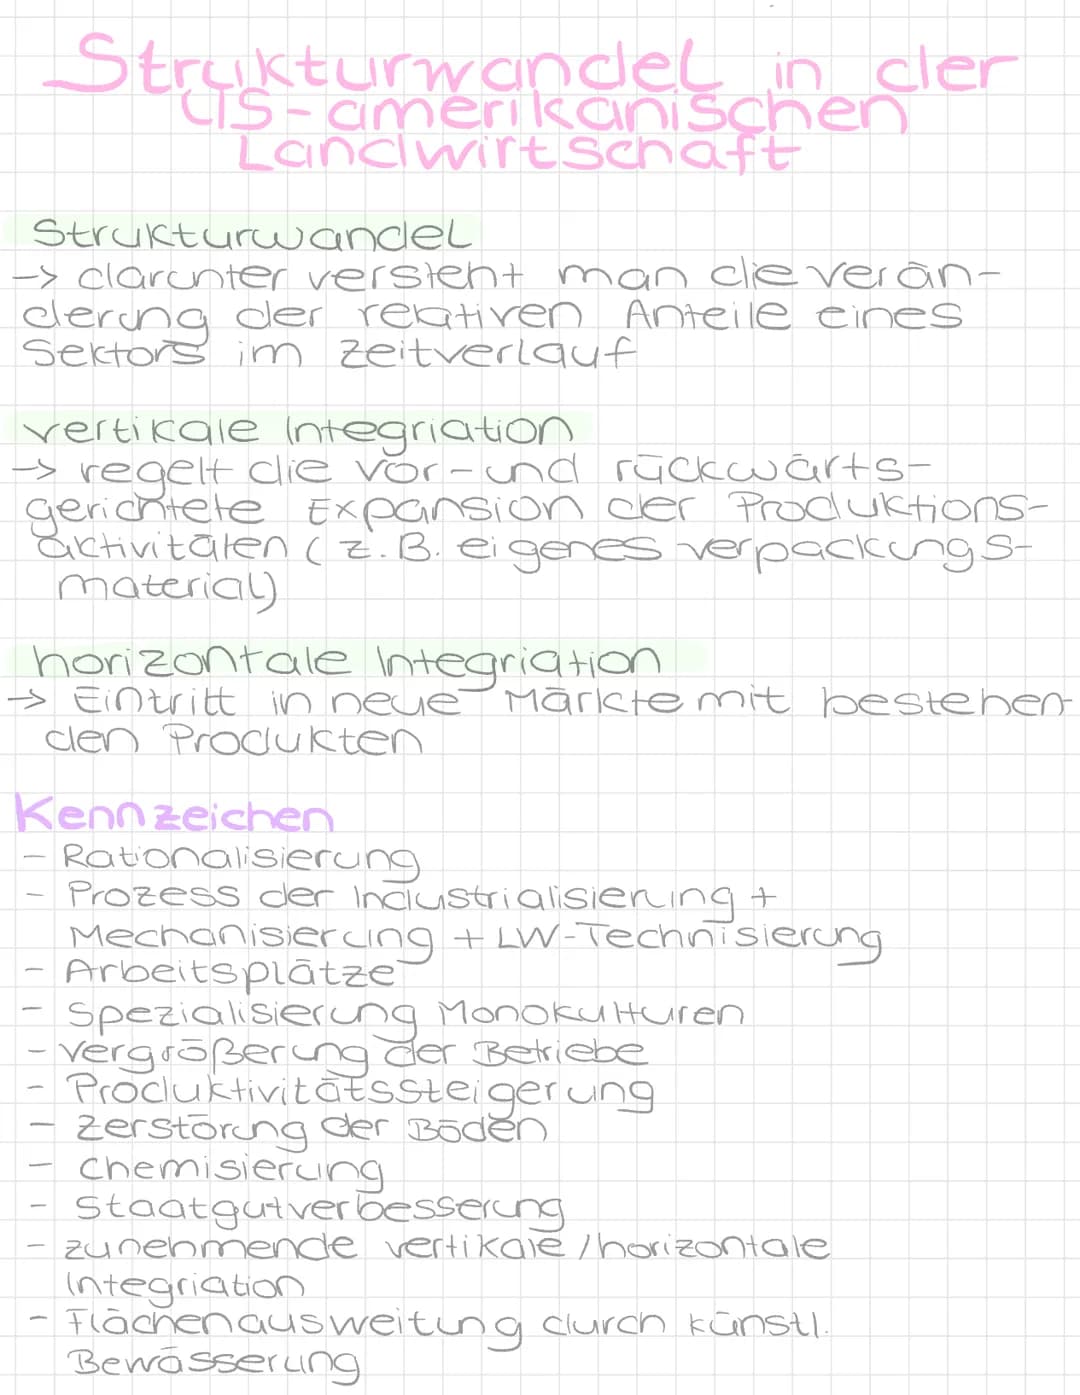 Strukturwandel in der
US-amerikanischen
Landwirtschaft
Strukturwandel
-> darunter versteht man die verän-
derung der relativen Anteile eines
Sektors im zeitverlauf
vertikale Integriation
-> regelt die vor-und rückwärts-
gerichtete Expansion der Produktions-
aktivitäten (z.B. eigenes verpackungs-
material)
horizontale Integriation
-> Eintritt in neue Märkte mit bestehen-
den Produkten
Kennzeichen
- Rationalisierung
- Prozess der Industrialisierung +
Mechanisierung + LW-Technisierung
- Arbeitsplätze
- Spezialisierung Monokulturen
- vergrößerung der Betriebe
- Produktivitätssteigerung
- zerstörung der Böden
- Chemisierung
- Staatgutverbesserung
- zunehmende vertikale/horizontale
Integriation
- Flächenausweitung durch künstl.
Bewässerung